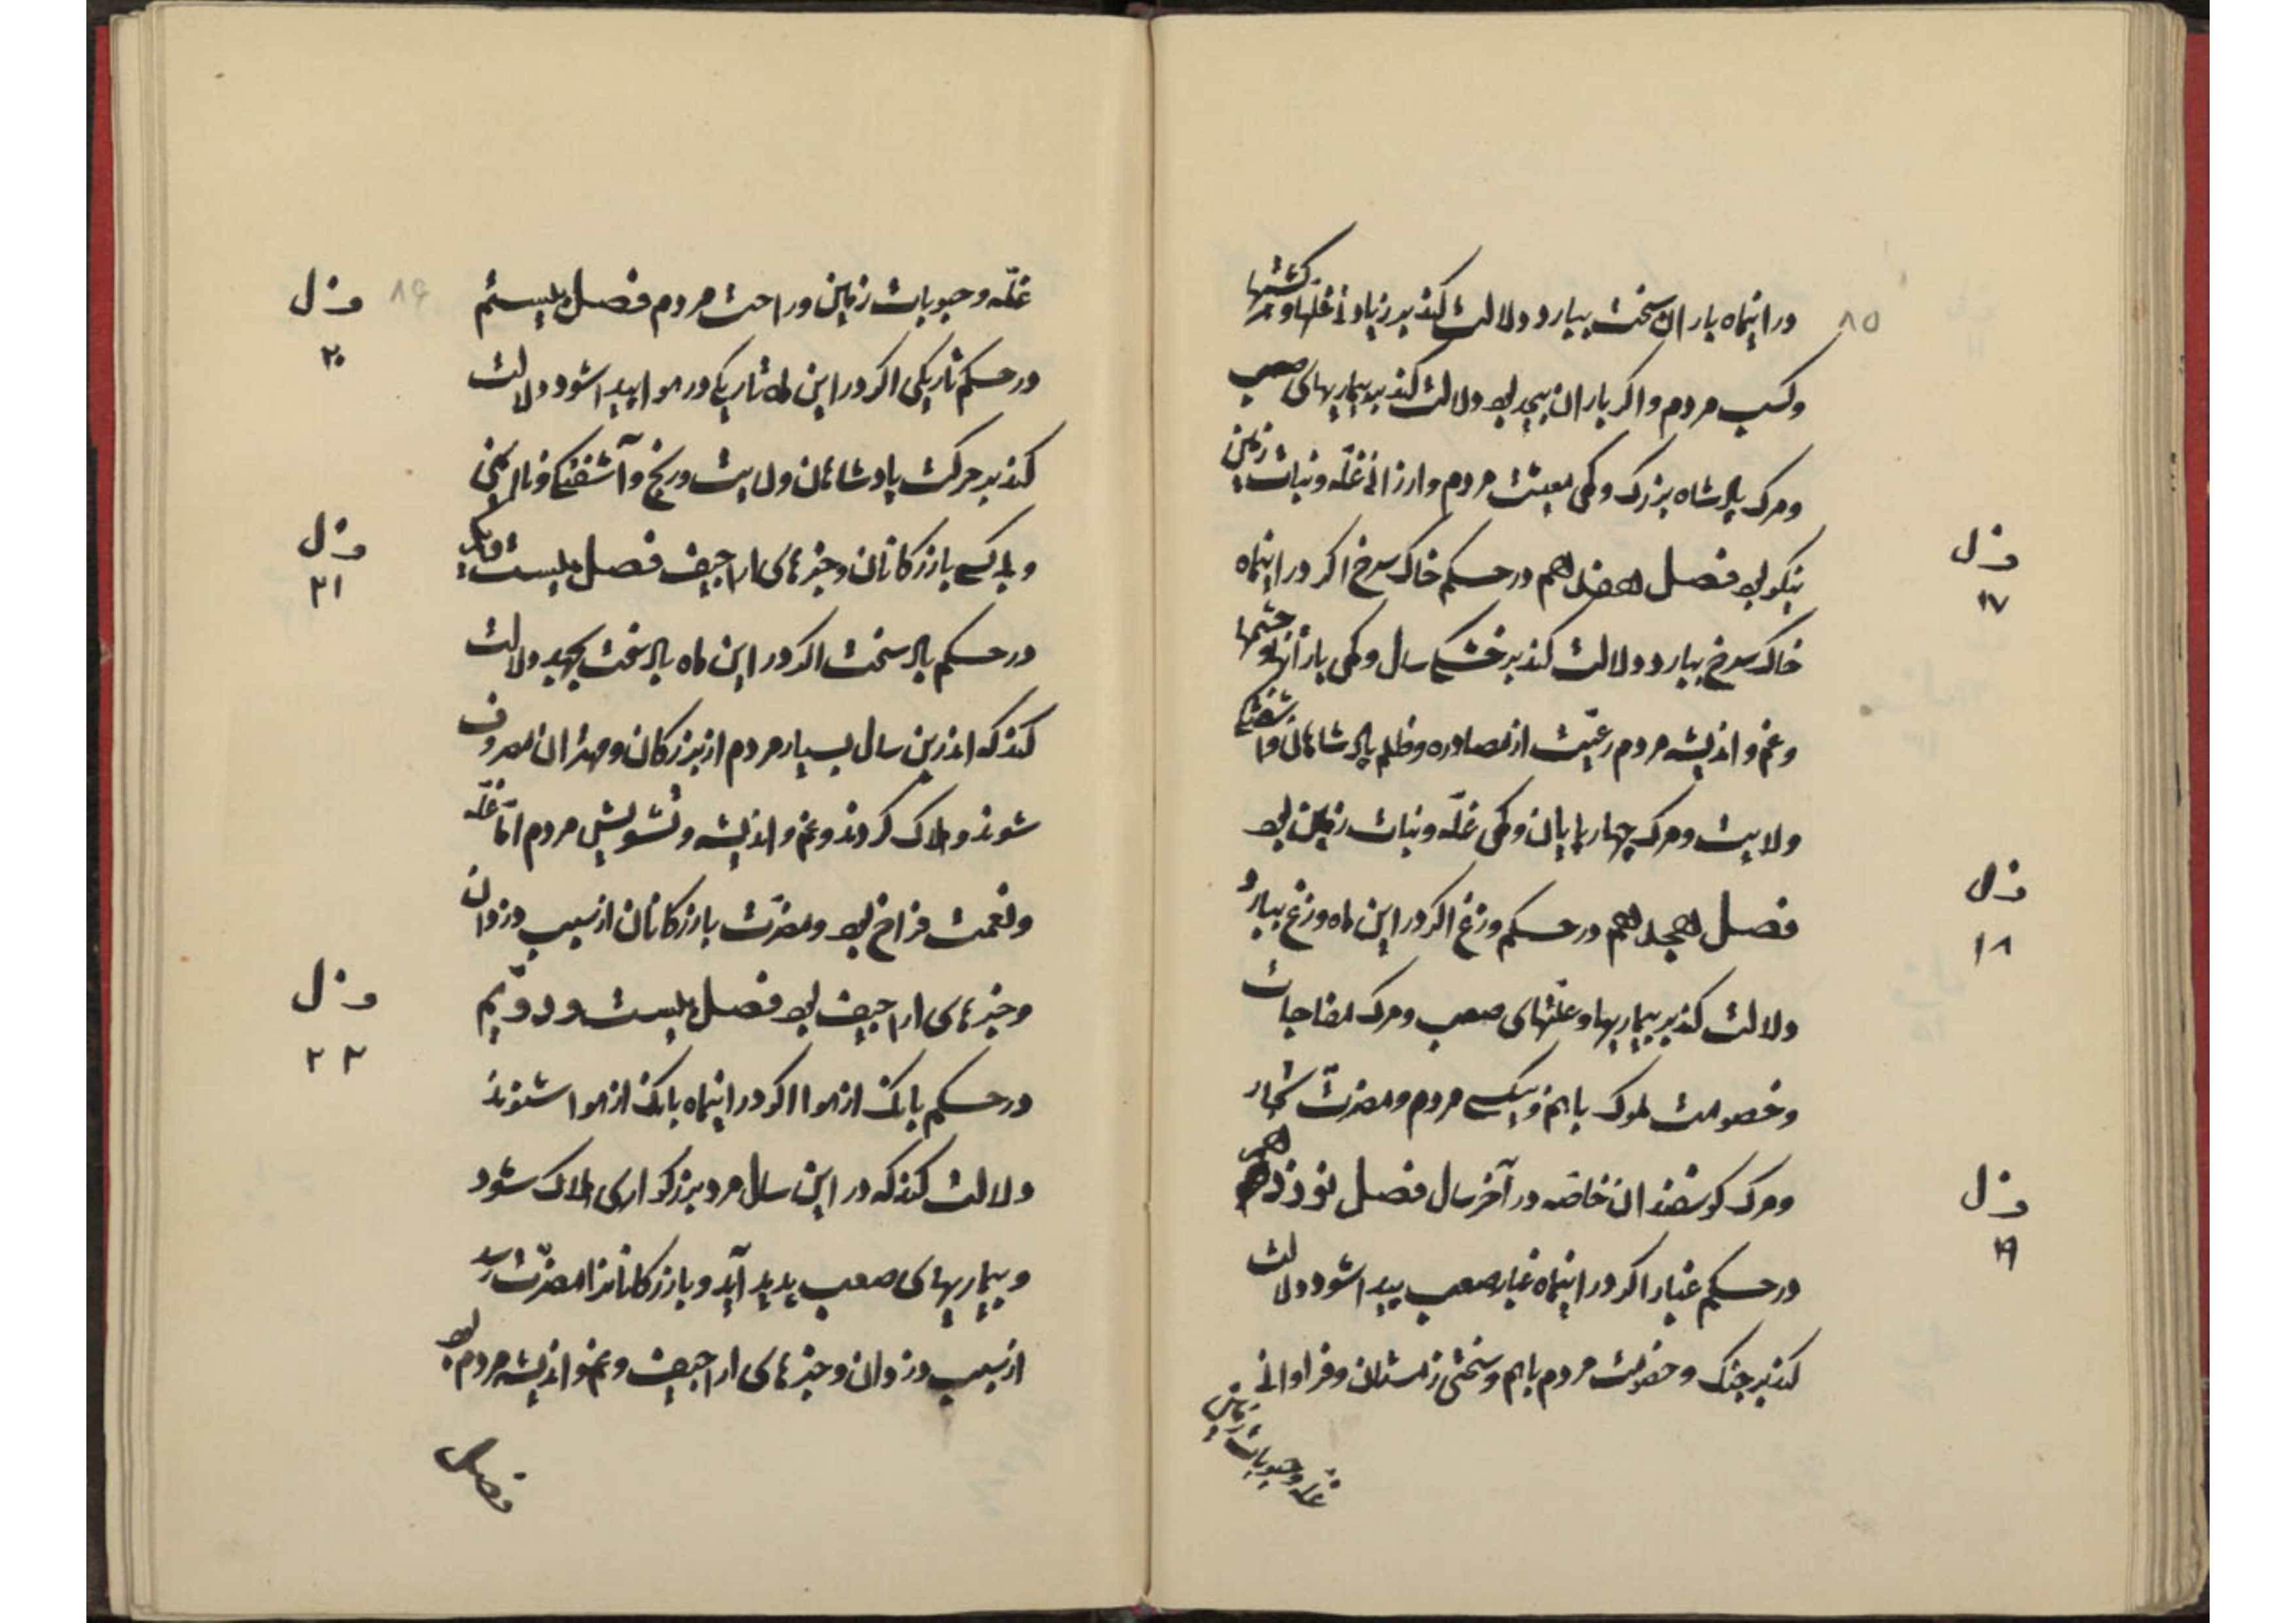 ۸۵
در اینماه باران سخت ببارد دلالت کند بر زیادتی غلّها و کشتها
وکسب مردم و اکر باران بیحد بود دلالت کند بر بیماریهای صعب
ومرک پادشاه بزرک وکمی معیشت مردم وارزانی غلّه ونبات زمین
نیکو بود فصل هفدهم در حکم خاک سرخ اکر در اینماه
فصل
۱۷
خاک سرخ ببارد دلالت کند بر خشکی سال وکمی بارانها و چشمها
وغم و اندیشه مردم رعیّت از مصادره وظلم پادشاهان و آشفتکی
ولایت ومرک چهارپایان وکمی غلّه ونبات زمین بود
فصل هجدهم در حکم وزغ اکر در این ماه وزغ ببارد
فصل
۱۸
دلالت کند بر بیماریها و علّتهای صعب ومرک مفاجات
وخصومت ملوک باهم و بیکسی مردم ومضرّت تجار
ومرک کوسفندان خاصّه در آخر سال فصل نوزدهم
فصل
۱۹
در حکم غبار اکر در اینماه غبار صعب پیدا شود دلالت
کند بر جنک و خصومت مردم باهم وسختی زمستان وفراوانی
غلّه وحبوبات زمین
۸۶
غلّه وحبوبات زمین وراحت مردم فصل بیستم
فصل
۲۰
در حکم تاریکی اکر در این ماه تاریکی در هوا پیدا شود دلالت
کند بر حرکت پادشاهان ولایت ورنج وآشفتکی ونا ایمنی
وبیکسی بازرکانان وخبرهای اراجیف فصل بیست ویکم
فصل
۲۱
در حکم باد سخت اکر در این ماه باد سخت بجهد دلالت
کند که اندرین سال بسیار مردم از بزرکان ومهتران معروف
شوند وهلاک کردند وغم و اندیشه وتشویش مردم امّا غلّه
ونعمت فراخ بود ومضرّت بازرکانان از سبب دزدان
وخبرهای اراجیف بود فصل بیست ودویّم
فصل
۲۲
در حکم بانک از هوا اکر در اینماه بانک از هوا شنوند
دلالت کند که در این سال مرد بزرکواری هلاک شود
وبیماریهای صعب پدید آید و بازرکانانرا مضرّت رسد
از سبب دزدان وخبرهای اراجیف وغم و اندیشه مردم بود
فصل